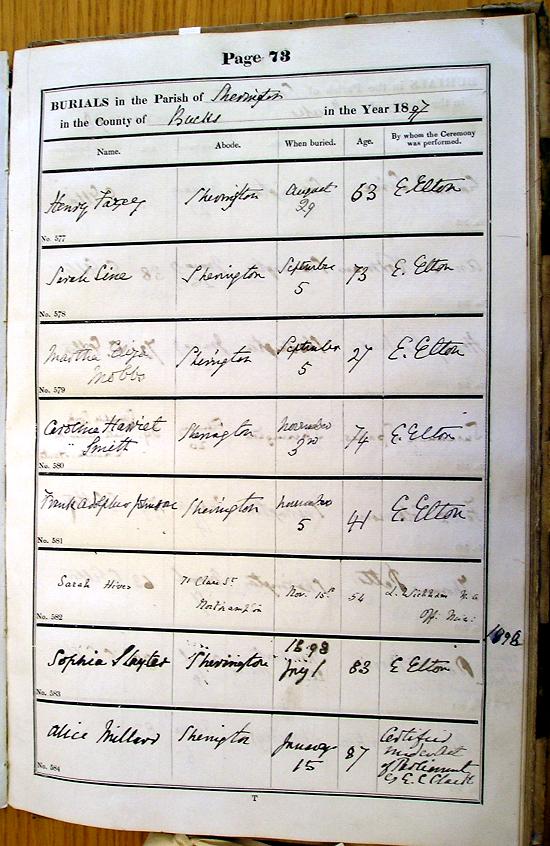 Page 73
BURIALS in the Parish of Sherington
in the County of Bucks in the Year 1897
Name. Abode. When buried. Age. By whom the Ceremony was performed.
Henry Farey Sherington August 29 63 E Elton
No. 577
Sarah Line Sherington September 5 73 E. Elton
No. 578
Martha Eliza Mobbs Sherington September 5 27 E. Elton
No. 579
Caroline Harriet Smith Sherington November 74 E. Elton
No. 580
Frank Adolphus Sherington November 5 41 E. Elton
No. 581
Sarah Hives 71 Clare St Northampton Nov. 54 Off. Min:
No. 582
1898
Sophia Slayter Sherington 1898 1 83 E Elton
No. 583
Alice Millard Sherington January 15 87 Certified under Act of Parliament by E. C.
No. 584
T